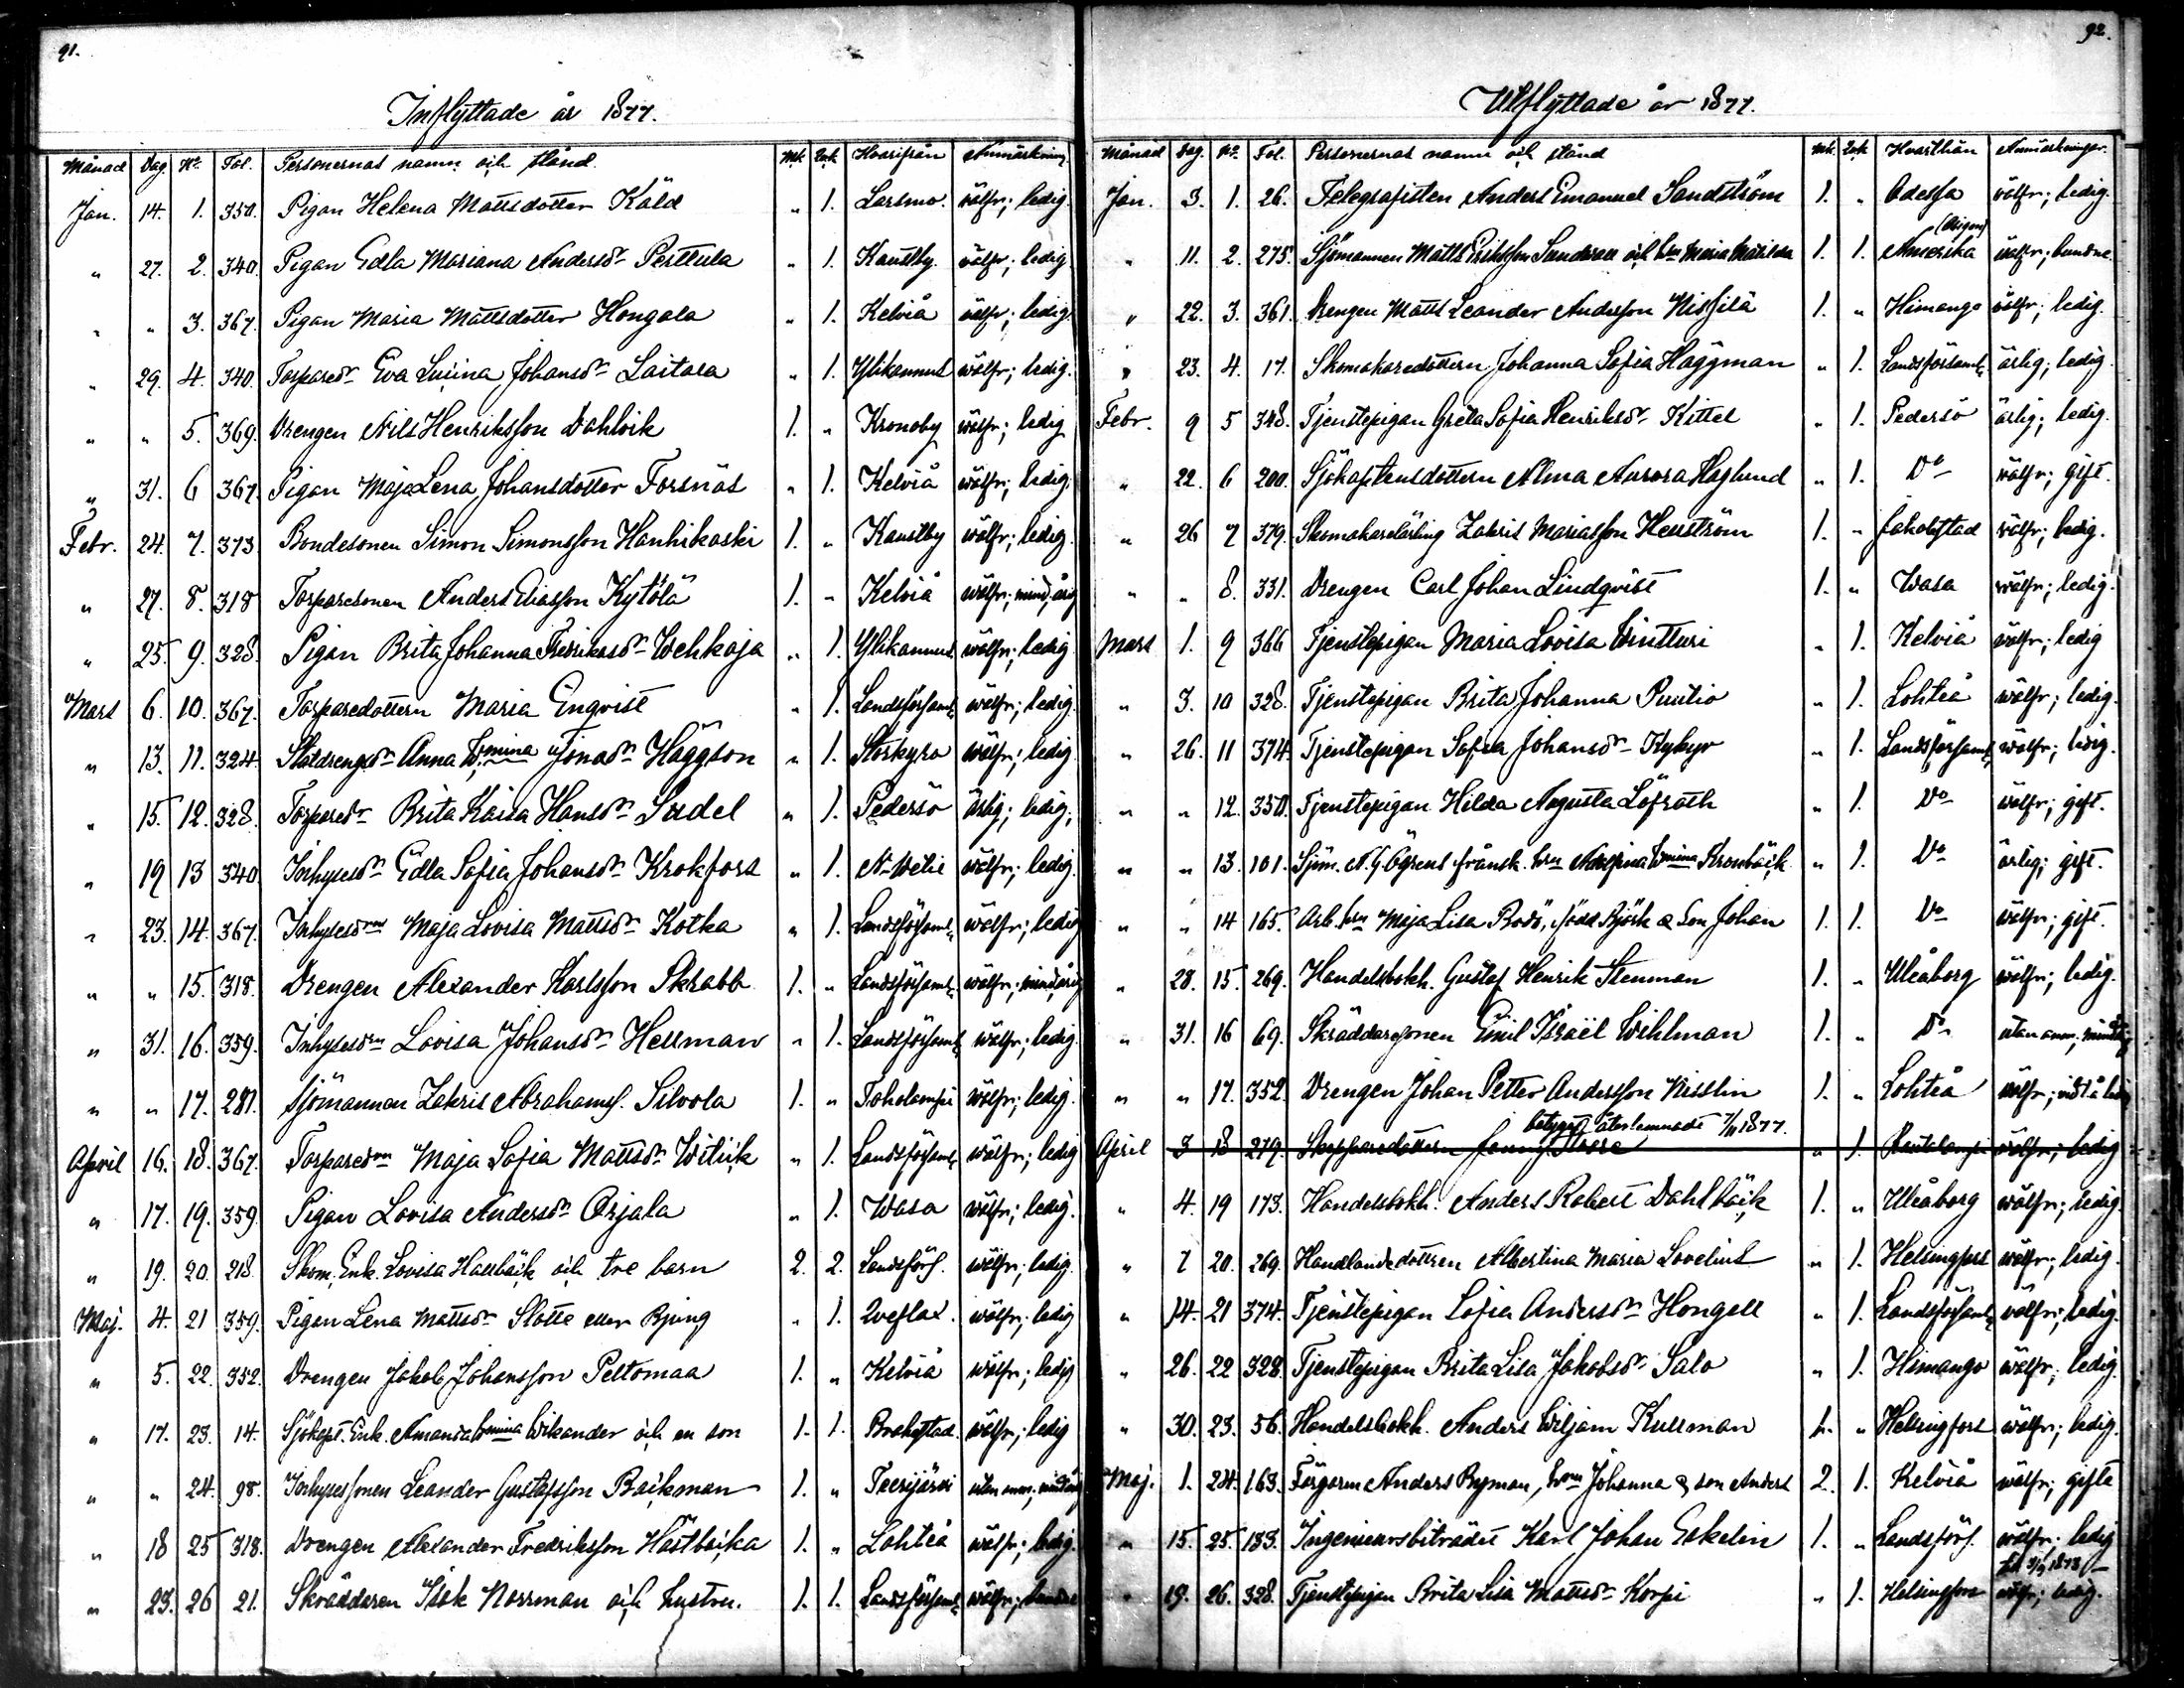 91.
Inflyttade år 1877.
Månad Dag. No. Fol. Personernas namn och stånd. Mk. Qvk Hvarifrån Anmärkning
Jan. 14. 1. 350. Pigan Helena Mattsdotter Kåld " 1. Larsmo. wälfr; ledig.
" 27. 2. 340. Pigan Edla Mariana Andersdr Perttula " 1. Kaustby. wälfr; ledig
" " 3. 367. Pigan Maria Mattsdotter Hongala " 1. Kelviå wälfr; ledig.
" 29. 4. 340. Torparedr Eva Lusina Johansdr Laitala " 1. Ylikannus wälfr; ledig.
" " 5. 369. Drengen Nils Henriksson Dahlvik 1. " Kronoby wälfr; ledig
" 31. 6 367. Pigan Maja Lena Johansdotter Forsnäs " 1. Kelviå wälfr; ledig.
Febr. 24. 7. 373 Bondesonen Simon Simonsson Hanhikoski 1. " Kaustby wälfr; ledig.
" 27. 8. 318 Torparesonen Anders Eliasson Kytölä 1. " Kelviå wälfr; mind.årig
" 25. 9. 328. Pigan Brita Johanna Fredriksdr Wehkaja " 1. Ylikannus wälfr; ledig
Mars 6. 10. 367. Torparedottern Maria Enqvist " 1. Landsförsaml. wälfr; ledig.
" 13. 11. 324. Stadrengsdr Anna Wmina Jonasdr Häggson " 1. Storkyro wälfr; ledig
" 15. 12. 328. Torparedr Brita Kaisa Hansdr Sadel " 1. Pedersö ärlig; ledig;
" 19 13 340. Inhysesdr Edla Sofia Johansdr Krokfors " 1. N-Wetil wälfr; ledig.
" 23. 14. 367. Inhysesdrn Maja Lovisa Mattsdr Kotka " 1. Landsförsaml. wälfr; ledig
" " 15. 318. Drengen Alexander Karlsson Skrabb 1. " Landsförsaml. wälfr; mind.årig
" 31. 16. 359. Inhysesdrn Lovisa Johansdr Hellman " 1. Landsförsaml. wälfr; ledig.
" " 17. 281. Sjömannen Zakris Abrahamss. Silvola 1. " Toholampi wälfr; ledig.
April 16. 18. 367. Torparedrn Maja Sofia Mattsdr Witick " 1. Landsförsaml. wälfr; ledig
" 17. 19. 359. Pigan Lovisa Andersdr Orjala " 1. Wasa wälfr; ledig.
" 19. 20. 218. Skom. Enk. Lovisa Hallbäck och tre barn 2. 2. Landsförs. wälfr; ledig.
Maj. 4. 21 359. Pigan Lena Mattsdr Slotte eller Bjung " 1. Qveflax. wälfr; ledig
" 5. 22. 352. Drengen Jakob Johansson Peltomaa 1. " Kelviå wälfr; ledig
" 17. 23. 14. Sjökapt. Enk. Amanda Wmina Wikander och en son 1. 1. Brahestad. wälfr; ledig
" " 24. 98. Inhysessonen Leander Gustafsson Backman 1. " Teerijärvi utan anm; mind.årig
" 18 25 318. Drengen Alexander Fredriksson Hästbacka 1. " Lohteå wälfr; ledig.
" 23. 26 21. Skräddaren Isak Norrman och hustru. 1. 1. Landsförsaml. wälfr; bundne
92.
Utflyttade år 1877.
Månad Dag. No. Fol. Personernas namn och stånd Mk. Qvk Hvarthän Anmärkningar.
Jan. 3. 1. 26. Telegrafisten Anders Emanuel Sandström 1. " Odessa wälfr; ledig.
(Origon)
" 11. 2. 275. Sjömannen Matts Eriksson Sundsvall och hu Maria Matilda 1. 1. Amerika wälfr; bundne.
" 22. 3. 361. Drengen Matts Leander Andersson Nissilä 1. " Himango wälfr; ledig.
" 23. 4. 17. Skomakaredottern Johanna Sofia Häggman " 1. Landsförsaml. ärlig; ledig
Febr. 9 5 348. Tjenstepigan Greta Sofia Henriksdr Kittel " 1. Pedersö ärlig; ledig.
" 22. 6 200. Sjökaptensdottern Alma Aurora Haglund " 1. Do wälfr; gift.
" 26 7 379. Skomakarelärling Zakris Mariasson Hellström 1. " Jakobstad wälfr; ledig.
" " 8. 331. Drengen Carl Johan Lindqvist 1. " Wasa wälfr; ledig.
Mars 1. 9 366 Tjenstepigan Maria Lovisa Wintturi " 1. Kelviå wälfr; ledig
" 3. 10 328. Tjenstepigan Brita Johanna Puutio " 1. Lohteå wälfr; ledig.
" 26. 11 374. Tjenstepigan Sofia Johansdr Kykyr " 1. Landsförsaml. wälfr; ledig.
" " 12. 350. Tjenstepigan Hilda Augusta Löfroth " 1. Do wälfr; gift.
" " 13. 101. Sjöm. N. G. Ögrens frånsk. hru Adolfina Wmina Kronbäck " 1. Do ärlig; gift.
" " 14 165. Arb. hru Maja Lisa Bodö, född Björk & Son Johan 1. 1. Do wälfr; gift.
" 28. 15. 269. Handelsbokh. Gustaf Henrik Stenman 1. " Uleåborg wälfr; ledig.
" 31. 16 69. Skräddaresonen Emil Israël Wihlman 1. " Do utan anm; mindårig
" " 17. 352. Drengen Johan Petter Andersson Nisslin 1. " Lohteå wälfr;
betyget återlemnadt 7/11 1877.
April 3 18 279. Skepparedottern Fanny " 1. Rautalampi wälfr; ledig
" 4. 19 173. Handelsbokh. Anders Robert Dahlbäck 1. " Uleåborg wälfr; ledig.
" 7 20. 269. Handlandedottren Albertina Maria Lovelius " 1. Helsingfors wälfr; ledig.
" 14. 21 374. Tjenstepigan Sofia Andersdr Hongell " 1. Landsförsaml. wälfr; ledig.
" 26. 22 328. Tjenstepigan Brita Lisa Jakobsdr Salo " 1. Himango wälfr; ledig.
" 30. 23. 56. Handelsbokh. Anders Wiljam Kullman 1. " Helsingfors wälfr; ledig.
Maj. 1. 24. 163. Färgaren Anders Ryman, hrun Johanna & son Anders 2. 1. Kelviå wälfr; gifte
" 15. 25. 133. Ingeniersbiträdet Karl Johan Eskelin 1. " Landsförs. wälfr; ledig
" 19. 26. 328. Tjenstepigan Brita Lisa Mattsdr Korpi " 1. Helsingfors wälfr; ledig.